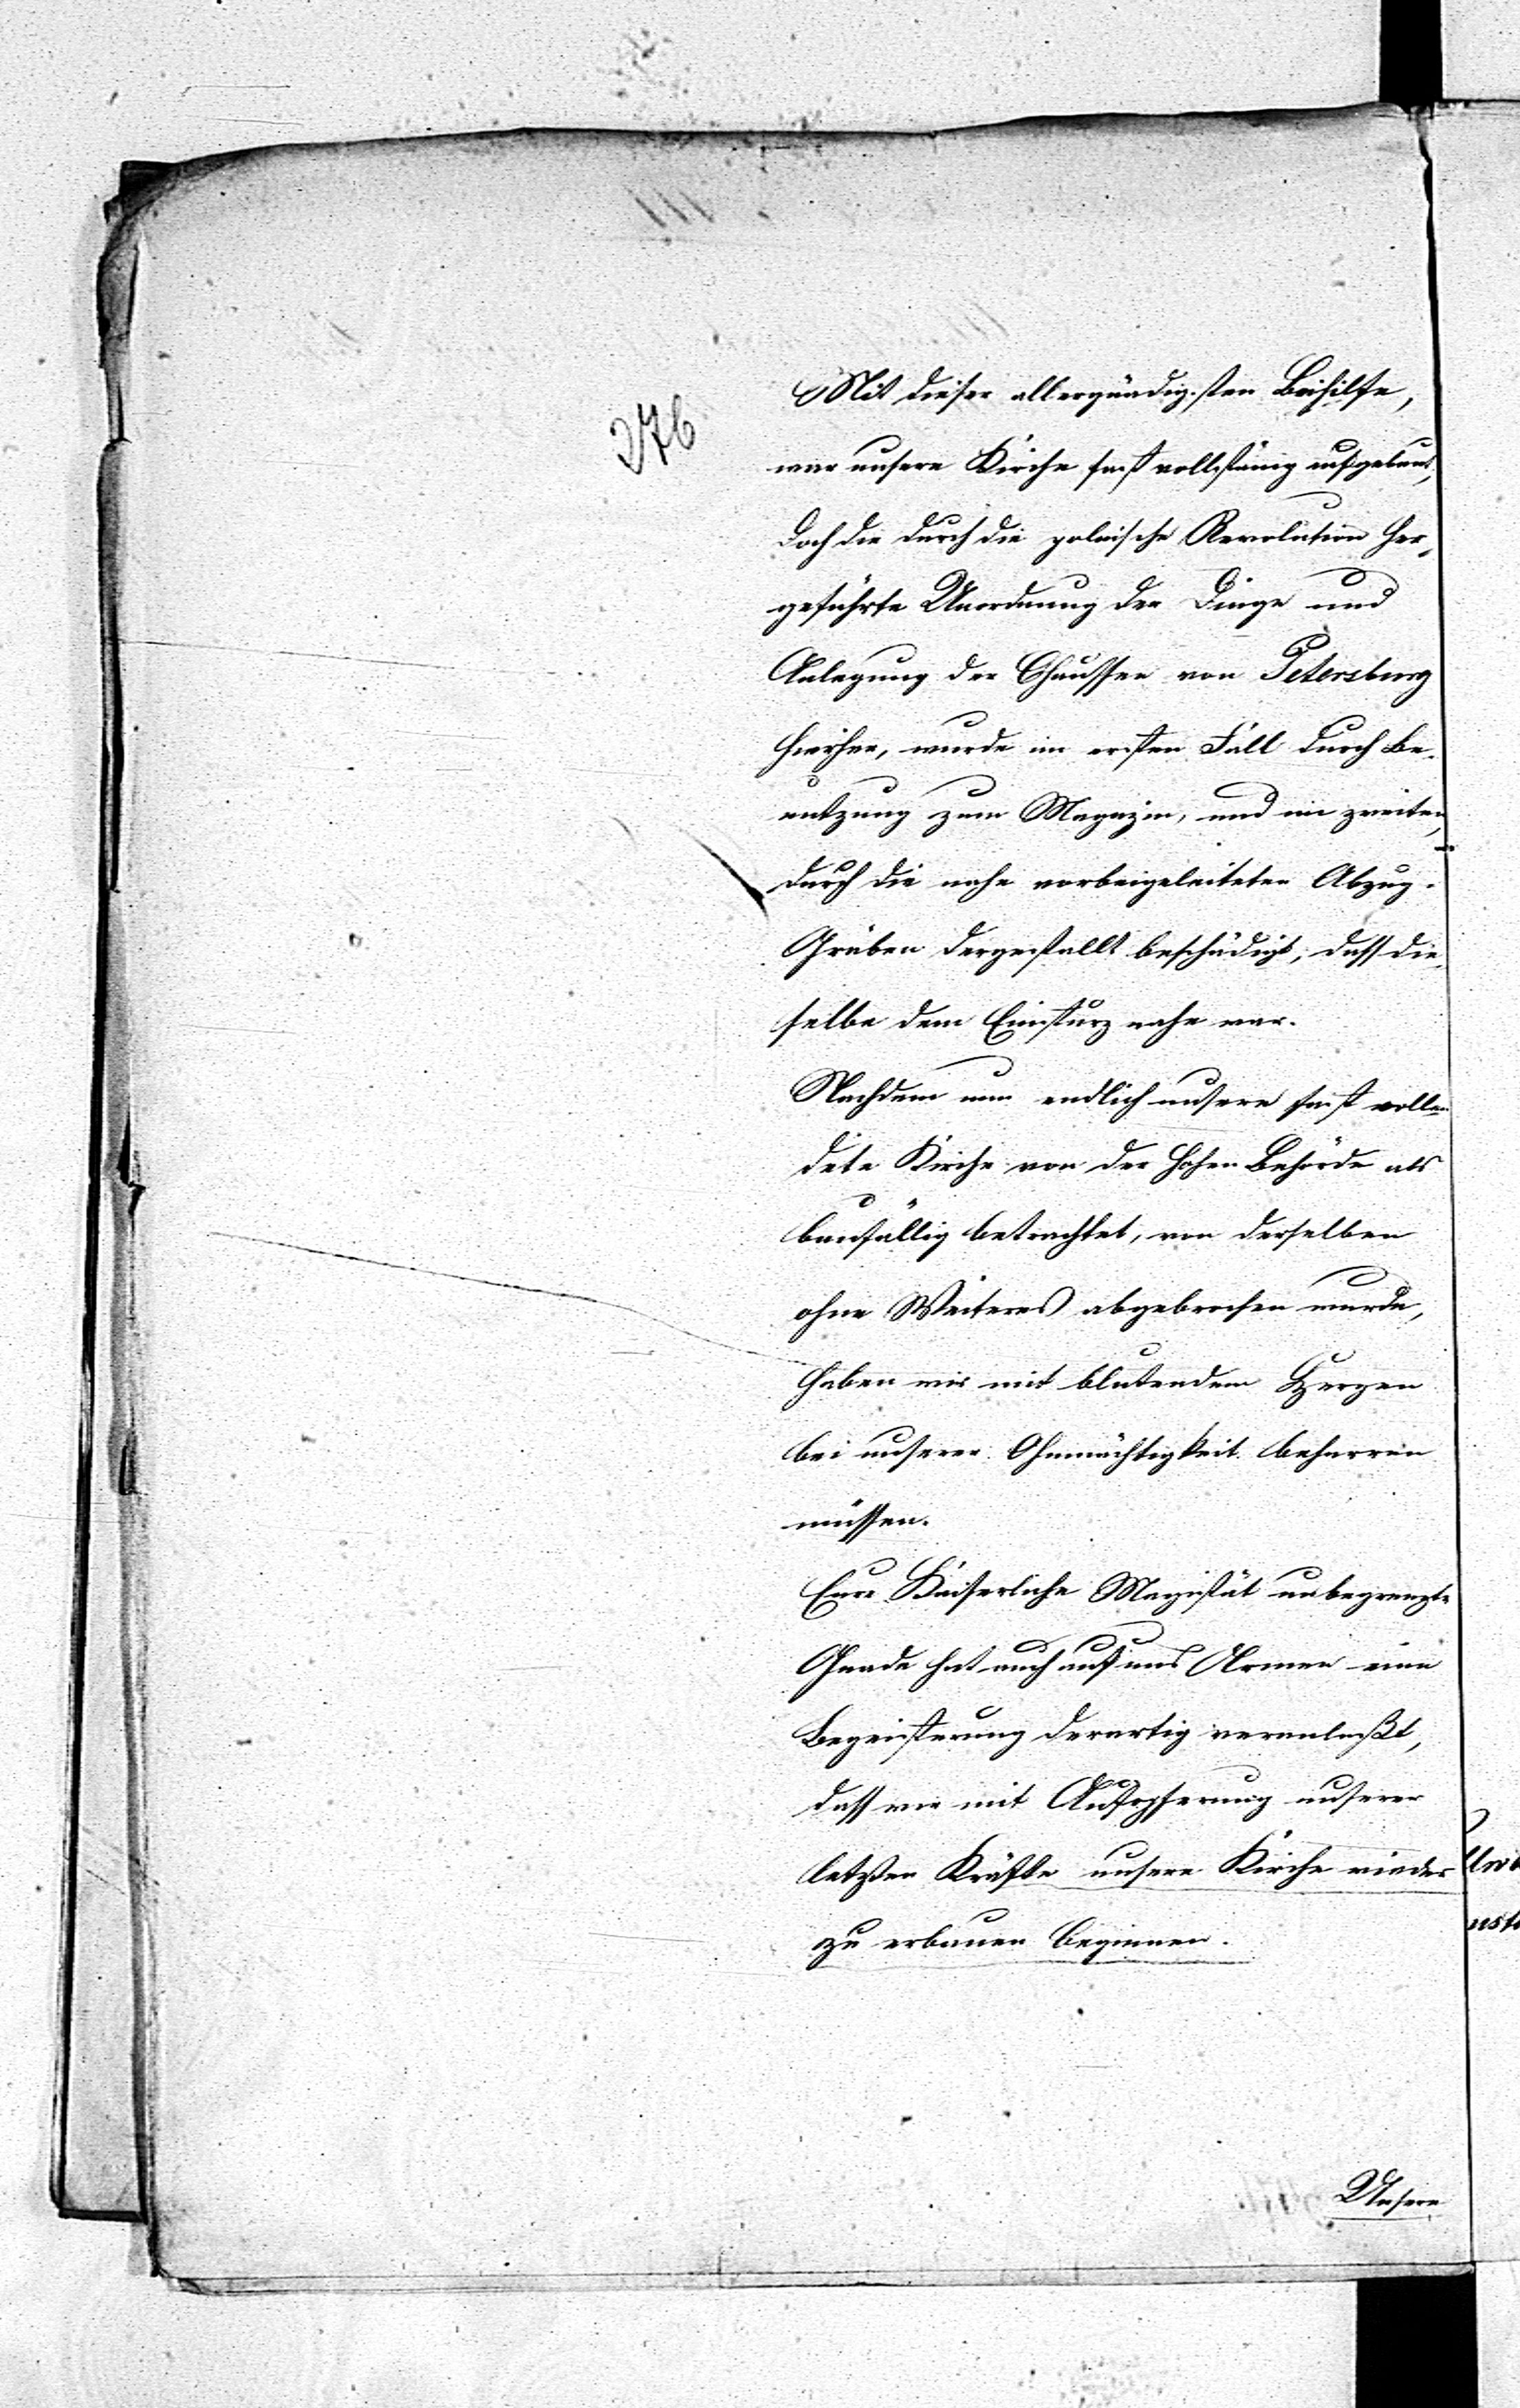 276
Mit dieser allergnädigsten Beihilfe,
war unsere Kirche fast vollständig aufgebaut,
doch die durch die polnische Revolution her,
geführte Unordnung der Dinge und
Anlegung der Chaussee von Petersburg
hierher, wurde im ersten Fall durch Be-
nutzung zum Magazin, und im zweiten,
durch die nahe vorbeigeleiteten Abzug-
Gräben dergestallt beschädigt, dass die,
selbe dem Einsturz nahe war.
Nachdem nun endlich unsere fast vollen
dete Kirche von der hohen Behörde als
baufällig betrachtet, von derselben
ohne Weiteres abgebrochen wurde,
haben wir mit blutendem Herzen
bei unserer Ohnmächtigkeit beharren
müssen.
Eure Kaiserliche Majestät unbegrenzte
Gnade hat auch auf uns Armen eine
Begeisterung derartig veranlaßt,
dass wir mit Aufopferung unserer
letzten Kräfte unsere Kirche wieder
zu erbauen beginnen.
Unsere